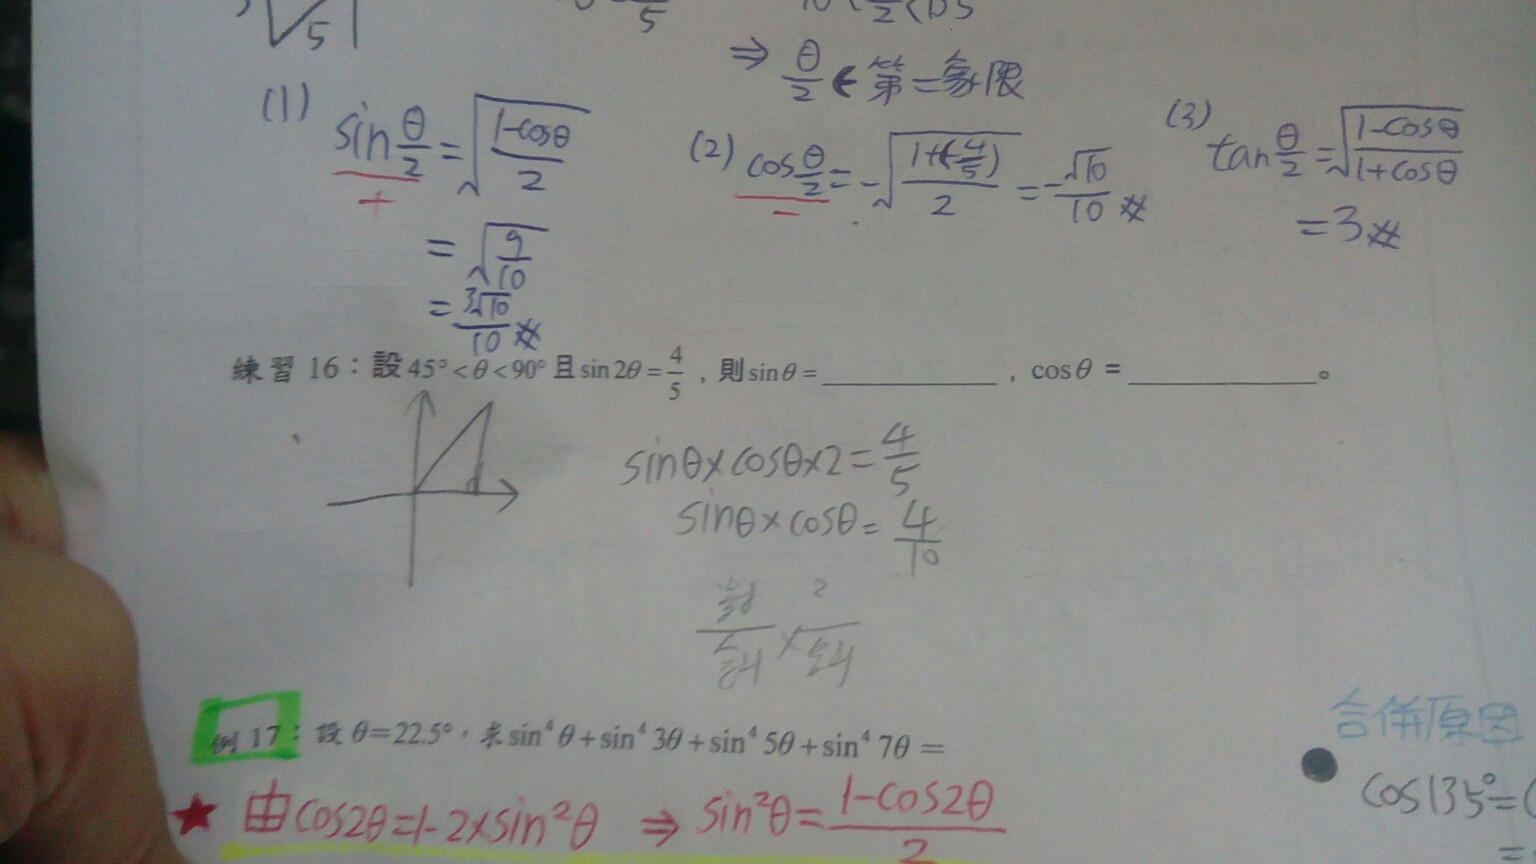 √5
5
2 <
⇒ θ/2 ∈ 第二象限
(1) sin θ/2 = √((1-cosθ)/2)
+
= √(9/10)
= 3√10/10 #
(2) cos θ/2 = -√((1+(-4/5))/2) = -√10/10 #
-
(3) tan θ/2 = √((1-cosθ)/(1+cosθ))
= 3 #
練習 16：設 45°<θ<90° 且 sin 2θ = 4/5 , 則 sin θ = ____________ , cos θ = ____________。
sinθ×cosθ×2 = 4/5
sinθ×cosθ = 4/10
例 17：設 θ=22.5°，求 sin⁴ θ + sin⁴ 3θ + sin⁴ 5θ + sin⁴ 7θ =
合併原因
★ 由 cos2θ=1-2×sin²θ ⇒ sin²θ = (1-cos2θ)/2
cos135°=
=